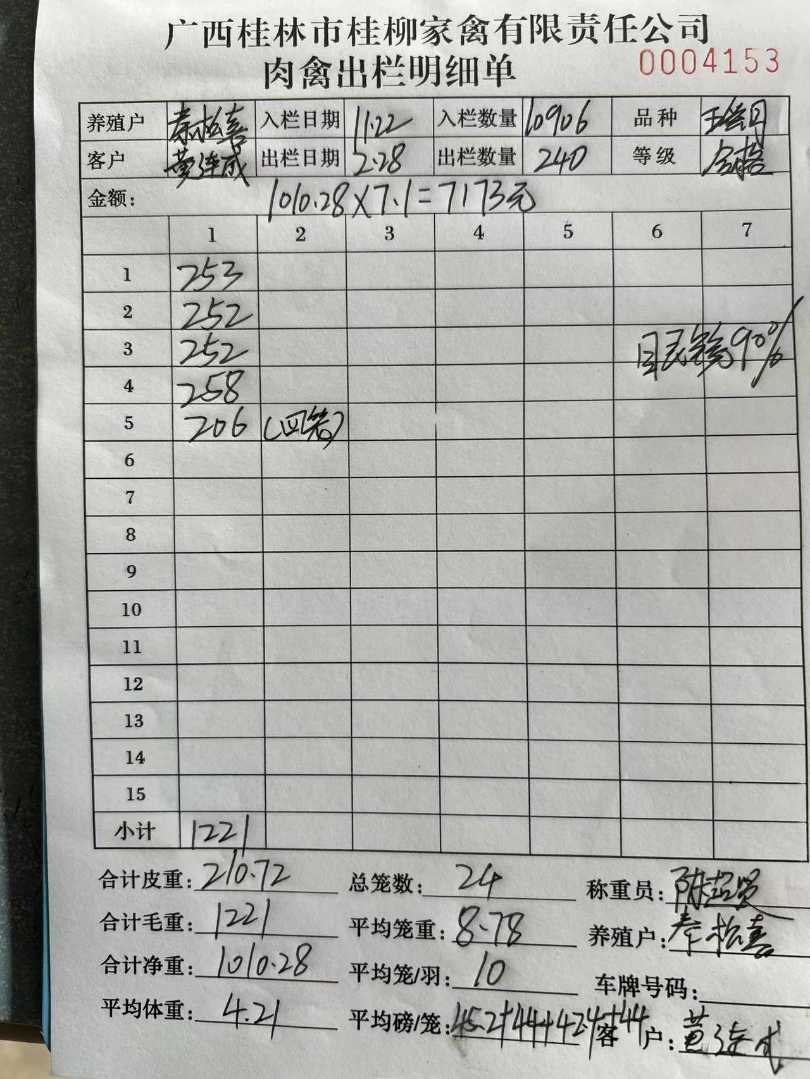 广西桂林市桂柳家禽有限责任公司
肉禽出栏明细单 0004153
养殖户 秦松喜 入栏日期 11.22 入栏数量 10906 品种
客户 黄连成 出栏日期 2.28 出栏数量 240 等级 合格
金额: 1010.28×7.1=7173元
1 2 3 4 5 6 7
1 253
2 252
3 252 90%
4 258
5 206 (四笼)
6
7
8
9
10
11
12
13
14
15
小计 1221
合计皮重: 210.72 总笼数: 24 称重员:
合计毛重: 1221 平均笼重: 8.78 养殖户: 秦松喜
合计净重: 1010.28 平均笼/羽: 10 车牌号码:
平均体重: 4.21 平均磅/笼: 45.2+44+42.4+44 客户: 黄连成